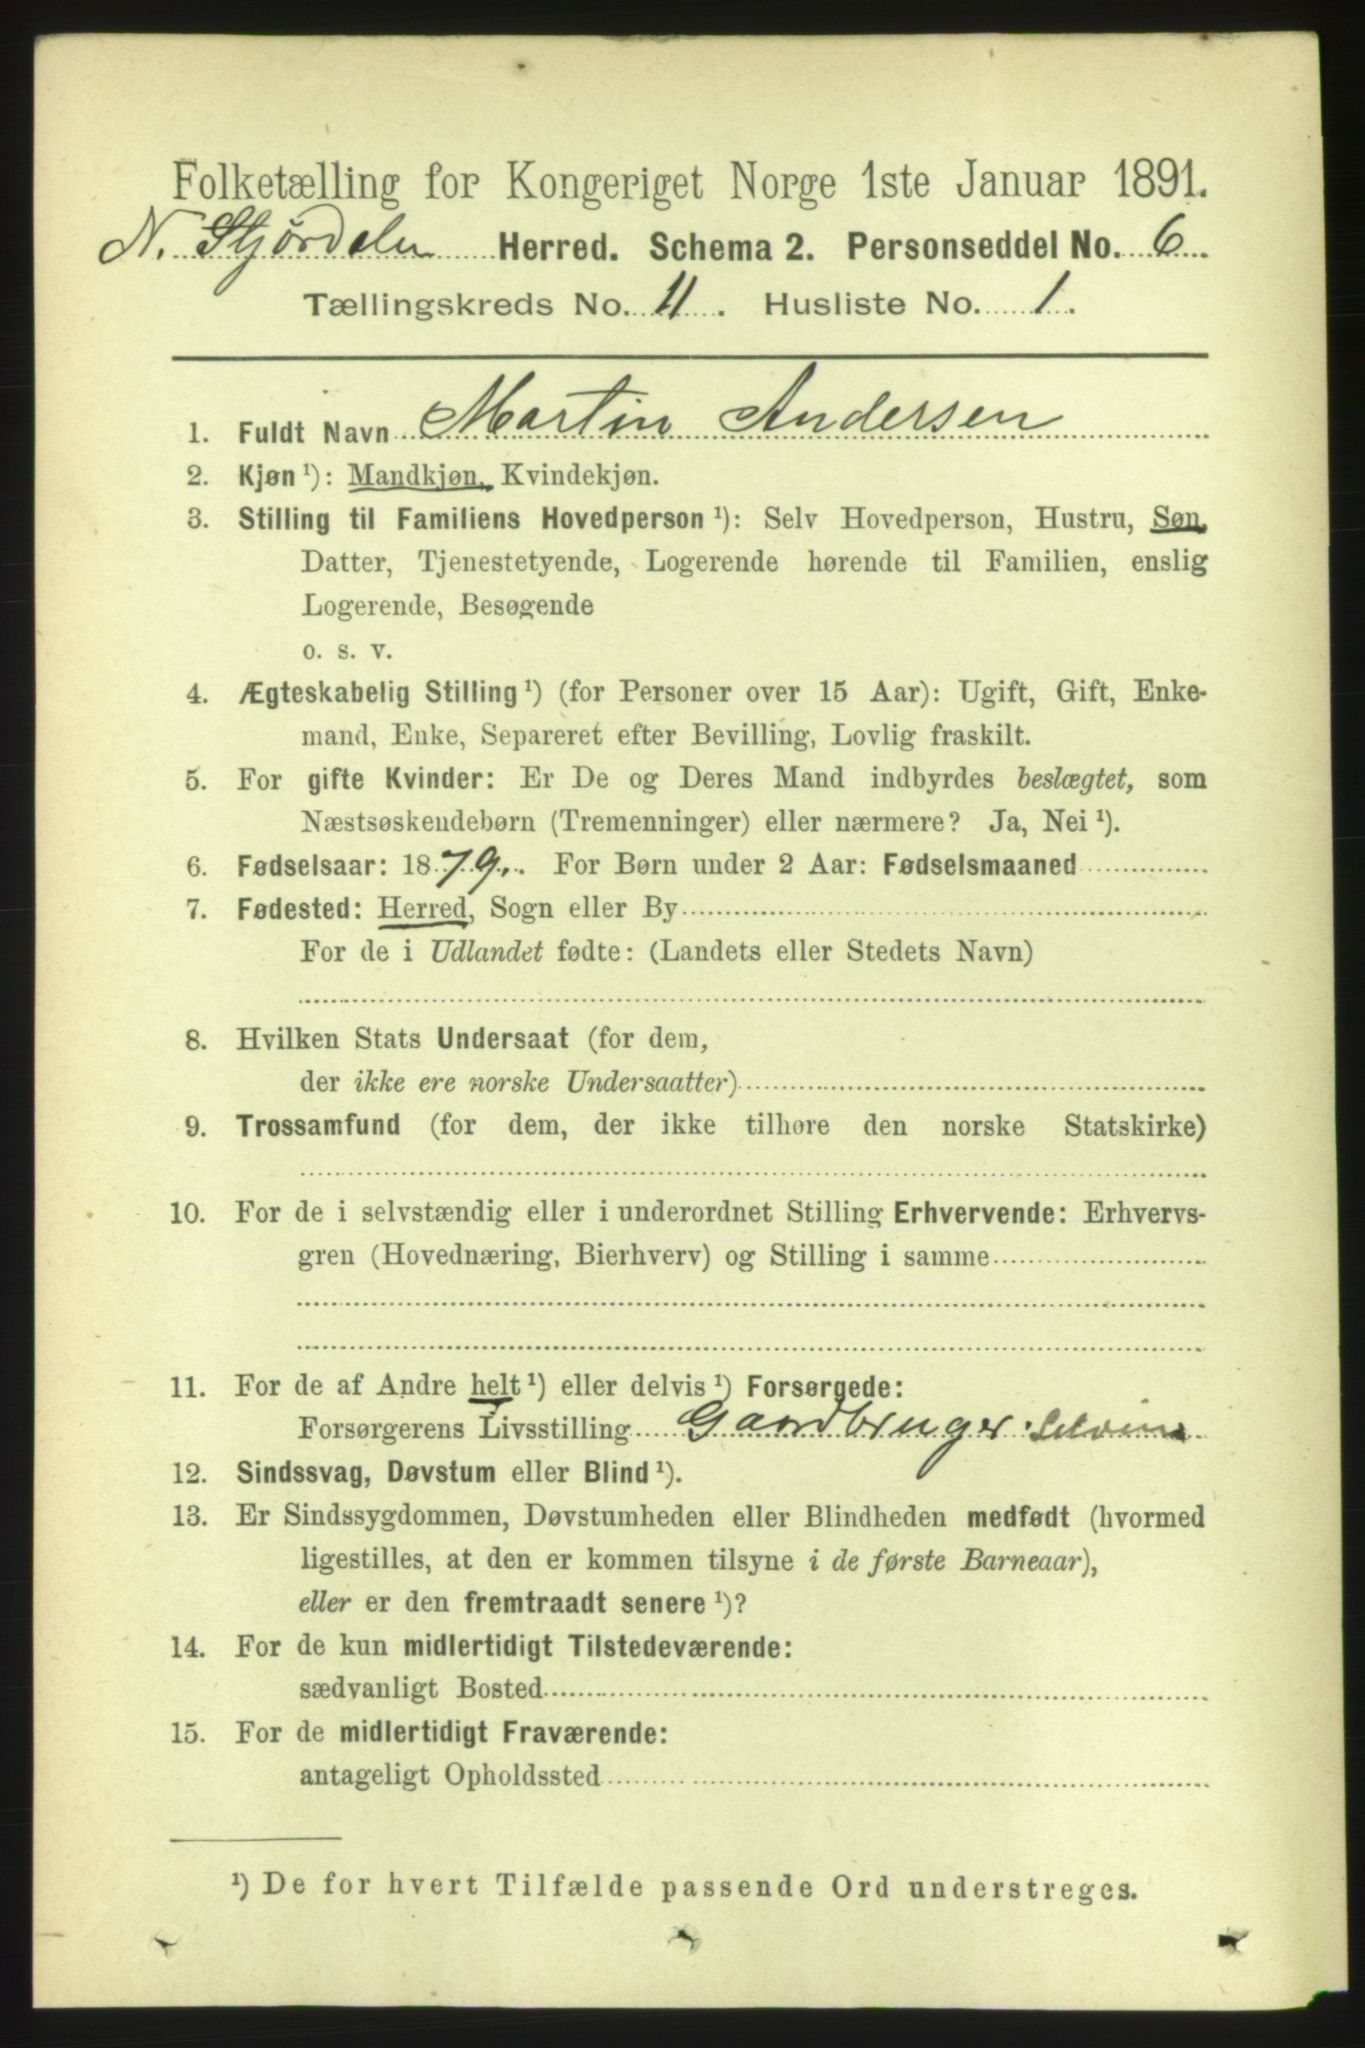 Folketælling for Kongeriget Norge 1ste Januar 1891.
N. Stjørdalen Herred. Schema 2. Personseddel No. 6
Tællingskreds No. 11. Husliste No. 1.
1. Fuldt Navn Martin Andersen
2. Kjøn ¹): Mandkjøn, Kvindekjøn.
3. Stilling til Familiens Hovedperson ¹): Selv Hovedperson, Hustru, Søn,
Datter, Tjenestetyende, Logerende hørende til Familien, enslig
Logerende, Besøgende
o. s. v.
4. Ægteskabelig Stilling ¹) (for Personer over 15 Aar): Ugift, Gift, Enke-
mand, Enke, Separeret efter Bevilling, Lovlig fraskilt.
5. For gifte Kvinder: Er De og Deres Mand indbyrdes beslægtet, som
Næstsøskendebørn (Tremenninger) eller nærmere? Ja, Nei ¹).
6. Fødselsaar: 1879. For Børn under 2 Aar: Fødselsmaaned
7. Fødested: Herred, Sogn eller By
For de i Udlandet fødte: (Landets eller Stedets Navn)
8. Hvilken Stats Undersaat (for dem,
der ikke ere norske Undersaatter)
9. Trossamfund (for dem, der ikke tilhøre den norske Statskirke)
10. For de i selvstændig eller i underordnet Stilling Erhvervende: Erhvervs-
gren (Hovednæring, Bierhverv) og Stilling i samme
11. For de af Andre helt ¹) eller delvis ¹) Forsørgede:
Forsørgerens Livsstilling Gaardbruger.
12. Sindssvag, Døvstum eller Blind ¹).
13. Er Sindssygdommen, Døvstumheden eller Blindheden medfødt (hvormed
ligestilles, at den er kommen tilsyne i de første Barneaar),
eller er den fremtraadt senere ¹)?
14. For de kun midlertidigt Tilstedeværende:
sædvanligt Bosted
15. For de midlertidigt Fraværende:
antageligt Opholdssted
¹) De for hvert Tilfælde passende Ord understreges.